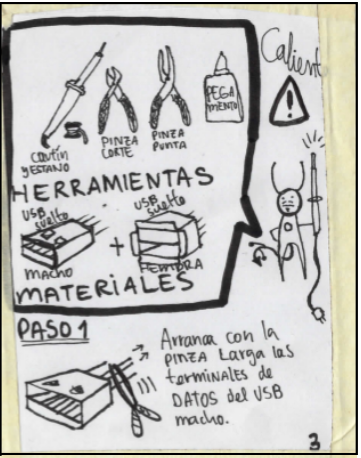 Caliente
PEGA
MENTO
Cautín
y ESTAÑO
PINZA
CORTE
PINZA
PUNTA
HERRAMIENTAS
USB
suelto
USB
suelto
+
macho
HEMBRA
MATERIALES
PASO 1
Arranca con la
PINZA Larga las
terminales de
DATOS del USB
macho.
3